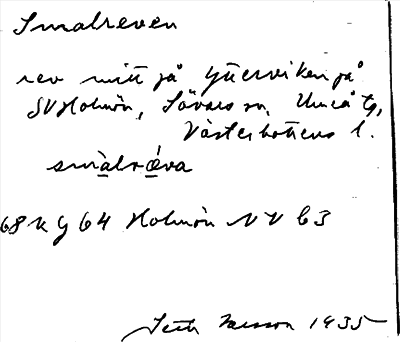 Smalreven
rev mitt på Ytterviken på
SV Holmön, Sävars sn, Umeå tg,
Västerbottens l.
smàlrǽva
68 K g 64 Holmön NV b3
Larsson 1935